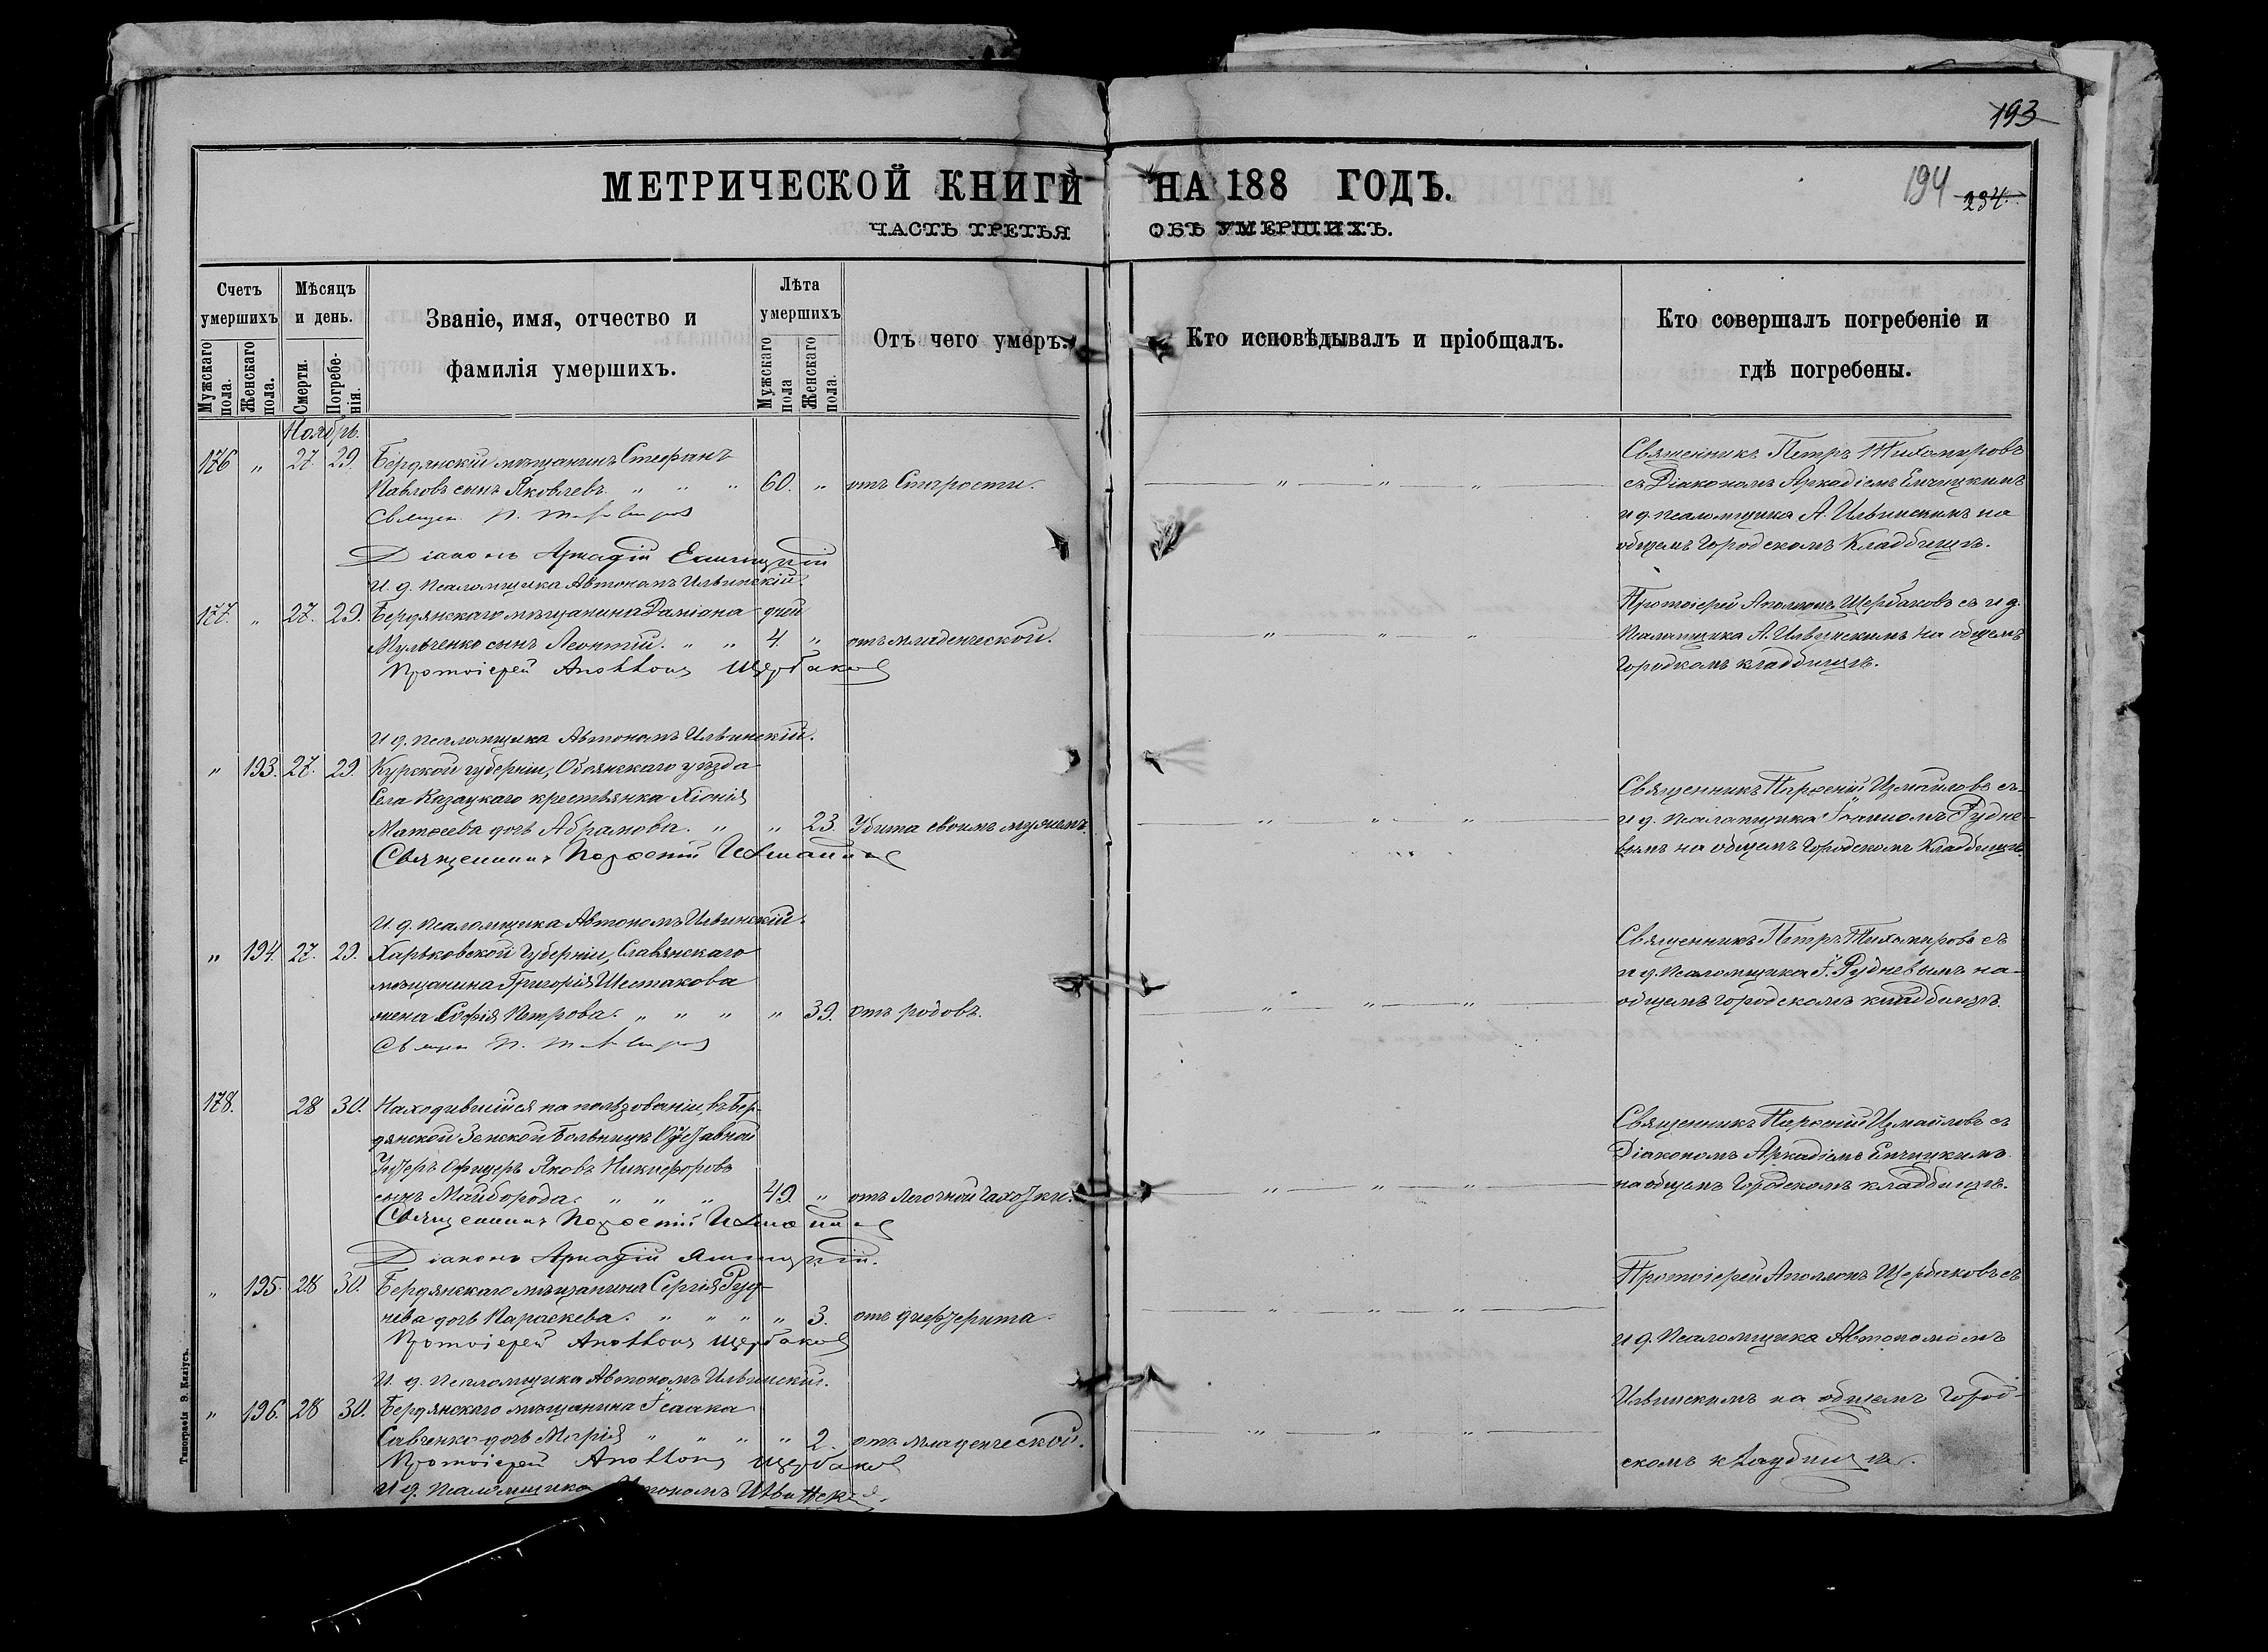 193
МЕТРИЧЕСКОЙ КНИГИ НА 188 ГОДЪ.
194 234.
ЧАСТЬ ТРЕТЬЯ ОБЪ УМЕРШИХЪ.
Счетъ умершихъ
Мужскаго пола.
Женскаго пола.
Мѣсяцъ и день.
Смерти.
Погребенія.
Званіе, имя, отчество и
фамилія умершихъ.
Лѣта умершихъ
Мужскаго пола
Женскаго пола.
Отъ чего умеръ.
Кто исповѣдывалъ и пріобщалъ.
Кто совершалъ погребеніе и
гдѣ погребены.
Ноябрь.
176 " 27. 29. Бердянскій мѣщанинъ Стефанъ
Павловъ сынъ Яковлевъ. " " " 60. " отъ Старости.
Священ. П. Тихомиров
Діаконъ Аркадій
И. д. Псаломщика Автономъ Ильинскій.
Священникъ Петръ Тихомировъ
съ Діакономъ Аркадіемъ
и д. псаломщика А. Ильинскимъ на
общемъ Городскомъ Кладбищѣ.
177. " 27. 29. Бердянскаго мѣщанина Даміана дней
Мульченко сынъ Леонтій. " " 4. " отъ младенческой.
Протоіерей Аполлонъ Щербаковъ
И д. псаломщика Автономъ Ильинскій.
Протоіерей Аполлонъ Щербаковъ съ и д.
Псаломщика А. Ильинскимъ на общемъ
Городскомъ кладбищѣ.
" 193. 27. 29. Курской губерніи, Обоянскаго уѣзда
Села Казацкаго крестьянка Хіонія
Матѳеева дочь Абрамова. " " 23. Убита своимъ мужемъ.
Священникъ Парѳеній Измаиловъ
И. д. Псаломщика Автономъ Ильинскій.
Священникъ Парѳеній Измаиловъ съ
и д. Псаломщика Іоанномъ Рудне-
вымъ на общемъ Городскомъ Кладбищѣ.
" 194. 27. 29. Харьковской Губерніи, Славянскаго
мѣщанина Григорія Шестакова
жена Софія Петрова. " " " " 39. отъ родовъ.
Священ П. Тихомиров
Священникъ Петръ Тихомировъ съ
и д. Псаломщика І. Рудневымъ на
общемъ городскомъ кладбищѣ.
178. 28 30. Находившійся на пользованіи, въ Бер-
дянской Земской Больницѣ Отставной
Унтеръ Офицеръ Яковъ Никифоровъ
сынъ Майборода. " " " 49. " отъ Легочной чахотки.
Священникъ Парѳеній Измаиловъ
Діаконъ Аркадій
Священникъ Парѳеній Измаиловъ съ
Діакономъ Аркадіемъ
на общемъ Городскомъ кладбищѣ.
" 195. 28 30. Бердянскаго мѣщанина Сергія Руд-
нева дочь Параскева. " " " " 3. отъ дифтерита.
Протоіерей Аполлонъ Щербаковъ
И. д. Псаломщика Автономъ Ильинскій.
" 196. 28 30. Бердянскаго мѣщанина Исаака
Савченко дочь Марія " " " " 2. отъ младенческой.
Протоіерей Аполлонъ Щербаковъ
И д. Псаломщика Автономъ Ильинскій.
Протоіерей Аполлонъ Щербаковъ съ
и д. Псаломщика Автономомъ
Ильинскимъ на общемъ Город-
скомъ кладбищѣ.
Типографія Э. Килiусъ.